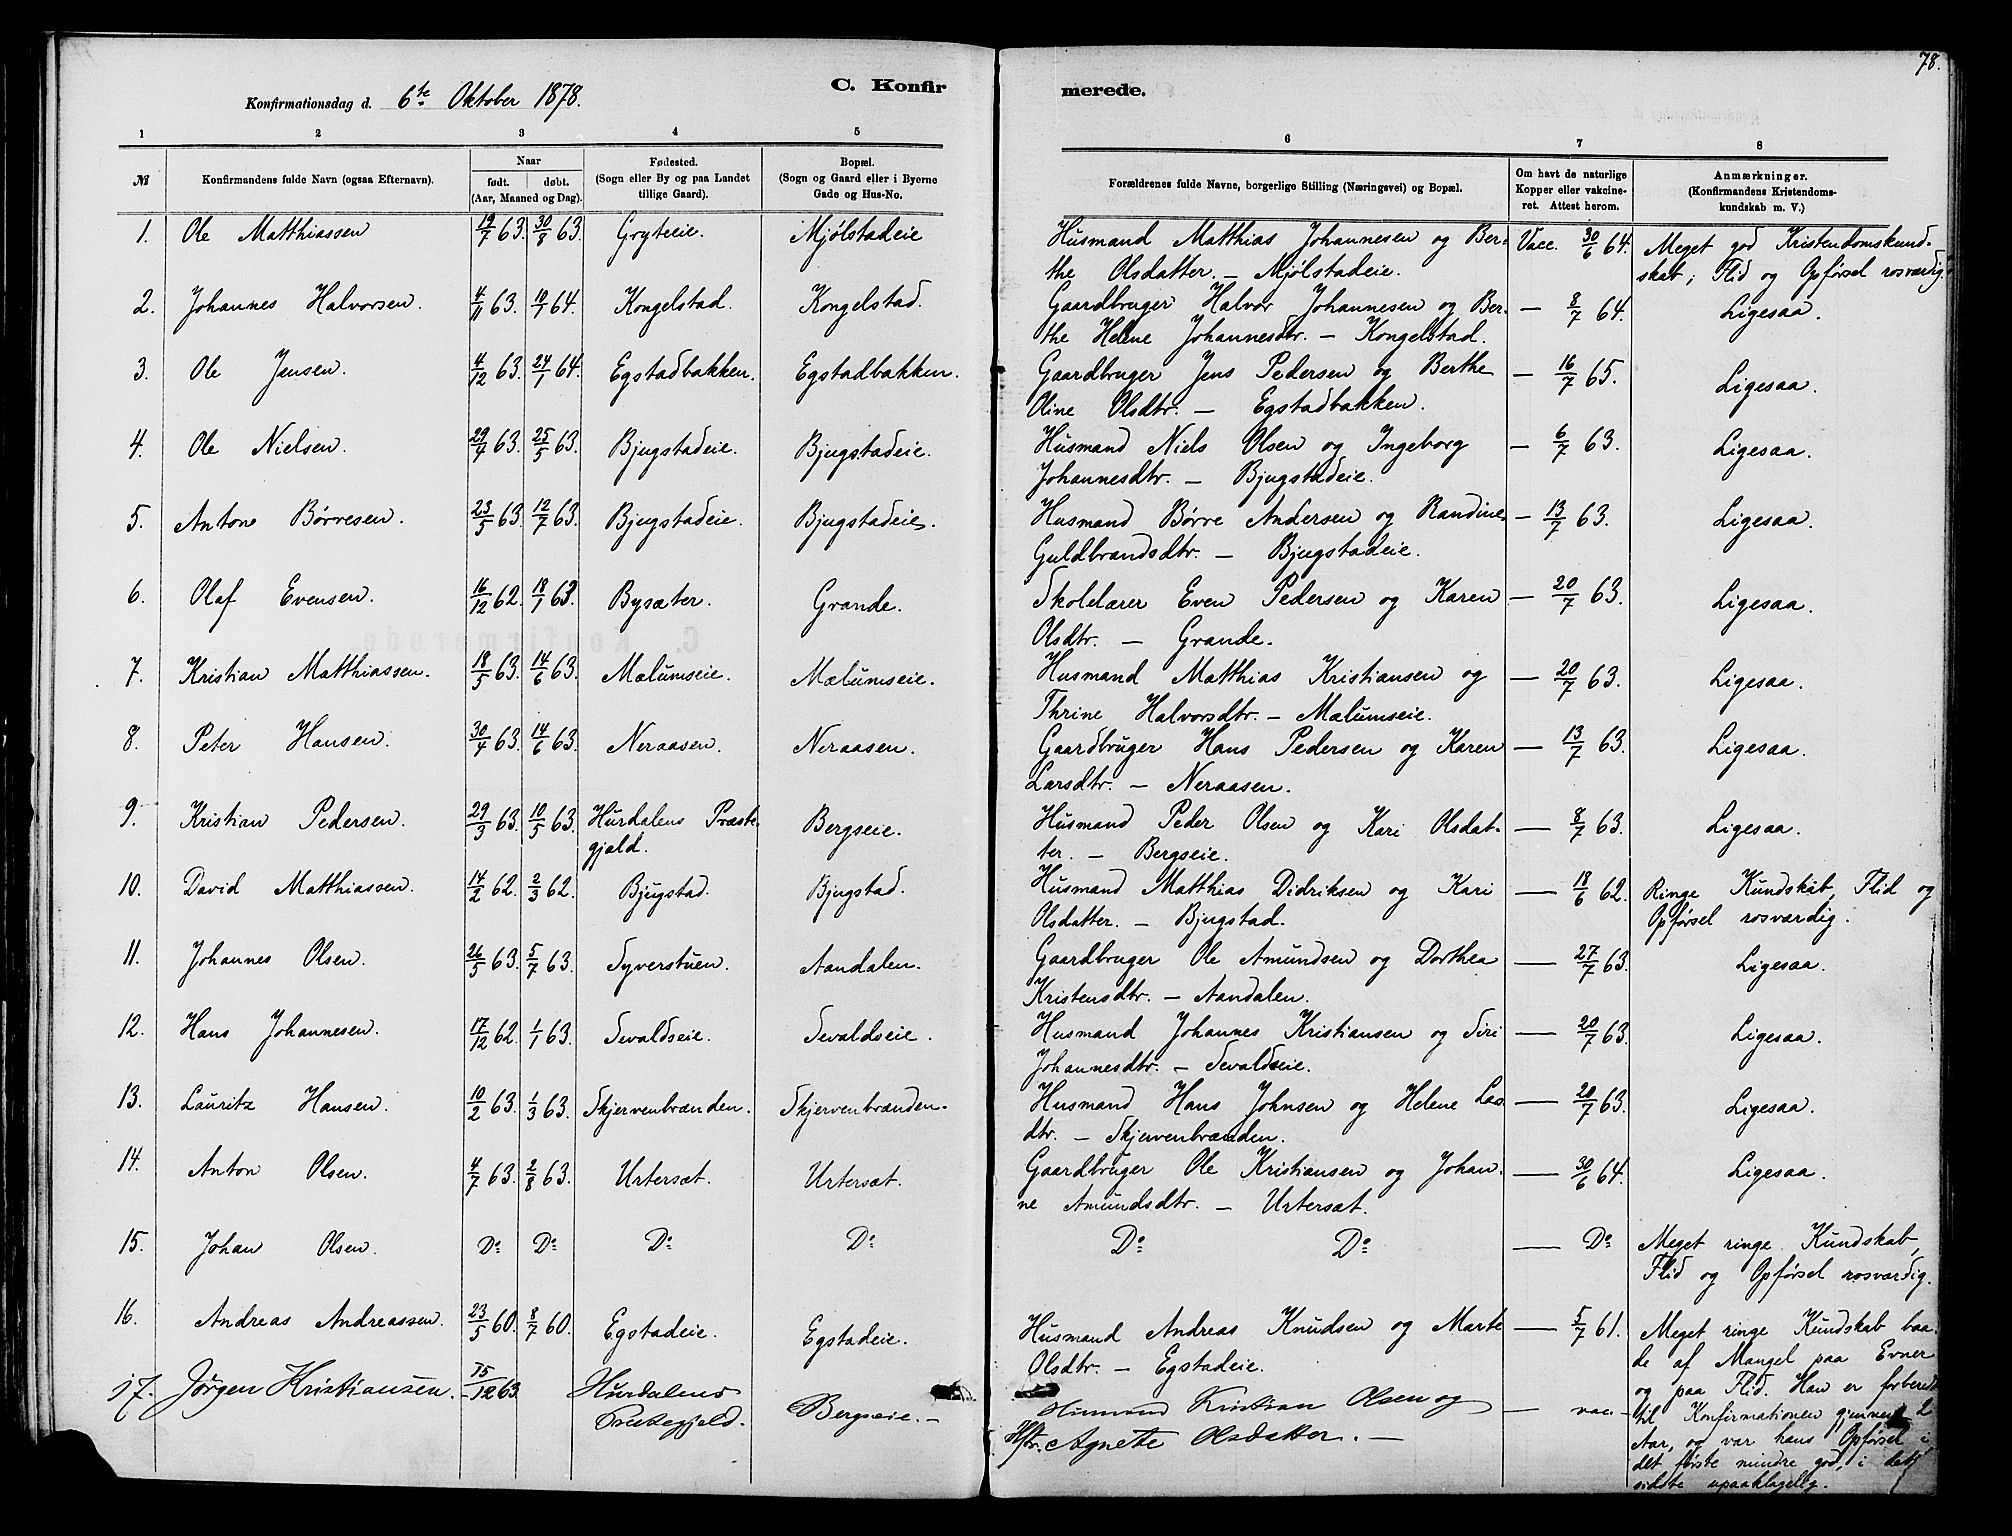 78.
Konfirmationsdag d. 6te Oktober 1878.
C. Konfirmerede.
1 2 3 4 5 6 7 8
№
Konfirmandens fulde Navn (ogsaa Efternavn).
Naar
født. døbt.
(Aar, Maaned og Dag).
Fødested.
(Sogn eller By og paa Landet
tillige Gaard).
Bopæl.
(Sogn og Gaard eller i Byerne
Gade og Hus-No.
Forældrenes fulde Navne, borgerlige Stilling (Næringsvei) og Bopæl.
Om havt de naturlige
Kopper eller vakcine-
ret. Attest herom.
Anmærkninger.
(Konfirmandens Kristendoms-
kundskab m. V.)
1. Ole Matthiassen 19/7 63. 30/8 63. Gryteeie. Mjølstadeie Husmand Matthias Johannesen og Ber- Vacc. 30/6 64. Meget god Kristendomskund-
the Olsdatter. — Mjølstadeie. skab; Flid og Opførsel rosværdig.
2. Johannes Halvorsen. 4/11 63. 10/1 64. Kongelstad. Kongelstad. Gaardbruger Halvor Johannesen og Ber- — 8/7 64. Ligesaa.
the Helene Johannesdtr. — Kongelstad.
3. Ole Jensen. 4/12 63. 24/1 64. Egstadbakken. Egstadbakken. Gaardbruger Jens Pedersen og Berthe — 16/7 65. Ligesaa.
Oline Olsdtr. — Egstadbakken.
4. Ole Nielsen. 29/4 63. 25/5 63. Bjugstadeie. Bjugstadeie. Husmand Niels Olsen og Ingeborg — 6/7 63. Ligesaa.
Johannesdtr. — Bjugstadeie.
5. Anton Børresen. 23/5 63. 12/7 63. Bjugstadeie. Bjugstadeie. Husmand Børre Andersen og Randine — 13/7 63. Ligesaa.
Guldbrandsdtr. — Bjugstadeie.
6. Olaf Evensen. 16/12 62. 18/1 63. Bysæter. Grande. Skolelærer Even Pedersen og Karen — 20/7 63. Ligesaa.
Olsdtr. — Grande.
7. Kristian Matthiassen. 18/5 63. 14/6 63. Mælumseie. Mælumseie. Husmand Matthias Kristiansen og — 20/7 63. Ligesaa.
Thrine Halvorsdtr. — Mælumseie.
8. Peter Hansen. 30/4 63. 14/6 63. Neraasen. Neraasen. Gaardbruger Hans Pedersen og Karen — 13/7 63. Ligesaa.
Larsdtr. — Neraasen.
9. Kristian Pedersen. 29/3 63. 10/5 63. Hurdalens Præste- Bergseie. Husmand Peder Olsen og Kari Olsdat- — 8/7 63. Ligesaa.
gjæld. ter. — Bergseie.
10. David Matthiassen. 14/2 62. 2/3 62. Bjugstad. Bjugstad. Husmand Matthias Didriksen og Kari — 18/6 62. Ringe Kundskab, Flid og
Olsdatter. — Bjugstad. Opførsel rosværdig.
11. Johannes Olsen. 26/5 63. 5/7 63. Syverstuen. Aandalen. Gaardbruger Ole Amundsen og Dorthea — 27/7 63. Ligesaa.
Kristensdtr. — Aandalen.
12. Hans Johannesen. 17/12 62. 1/1 63. Sevaldseie. Sevaldseie. Husmand Johannes Kristiansen og Siri — 20/7 63. Ligesaa.
Johannesdtr. — Sevaldseie.
13. Lauritz Hansen. 10/2 63. 1/3 63. Skjervenbrænden. Skjervenbrænden. Husmand Hans Johnsen og Helene Las — 20/7 63. Ligesaa.
dtr. — Skjervenbrænden.
14. Anton Olsen. 4/7 63. 2/8 63. Urtersæt. Urtersæt. Gaardbruger Ole Kristiansen og Johan- — 30/6 64. Ligesaa.
ne Amundsdtr. — Urtersæt.
15. Johan Olsen. Do Do Do Do Do Do — Do Meget ringe Kundskab,
Flid og Opførsel rosværdig.
16. Andreas Andreassen. 23/5 60. 8/7 60. Egstadeie. Egstadeie. Husmand Andreas Knudsen og Marte — 5/7 61. Meget ringe Kundskab baa-
Olsdtr. — Egstadeie. de af Mangel paa Evner
og paa Flid. Han er forberedt
til Konfirmationen gjennem 2
Aar, og var hans Opførsel i
det første mindre god, i det
sidste upaaklagelig.
17. Jörgen Kristiansen. 15/12 63. Hurdalens Bergseie. — Husmand Kristian Olsen og — vac. —
Præstegjeld. Hstr. Agnette Olsdatter. —